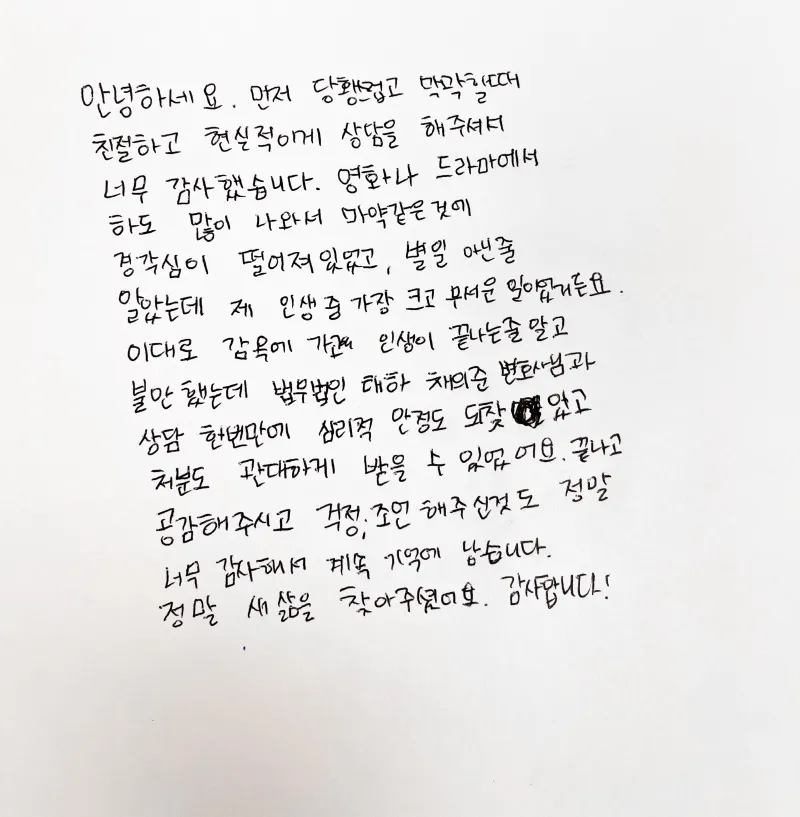 안녕하세요. 먼저 당황스럽고 막막할때
친절하고 현실적이게 상담을 해주셔서
너무 감사했습니다. 영화나 드라마에서
하도 많이 나와서 마약같은것에
경각심이 떨어져있었고, 별일 아닌줄
알았는데 제 인생 중 가장 크고 무서운 일이었거든요.
이대로 감옥에 가고 인생이 끝나는줄 알고
불안했는데 법무법인 태하 채의준 변호사님과
상담 한번만에 심리적 안정도 되찾았고
처분도 관대하게 받을 수 있었어요. 끝나고
공감해주시고 걱정, 조언 해주신것도 정말
너무 감사해서 계속 기억에 남습니다.
정말 새 삶을 찾아주셨어요. 감사합니다!